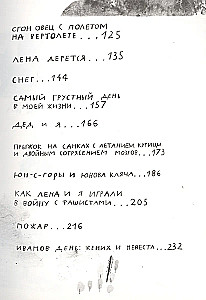 СГОН ОВЕЦ С ПОЛЕТОМ
НА ВЕРТОЛЕТЕ...125
ЛЕНА ДЕРЕТСЯ...135
СНЕГ...144
САМЫЙ ГРУСТНЫЙ ДЕНЬ
В МОЕЙ ЖИЗНИ...157
ДЕД И Я...166
ПРЫЖОК НА САНКАХ С ЛЕТАНИЕМ КУРИЦЫ
И ДВОЙНЫМ СОТРЯСЕНИЕМ МОЗГОВ...173
ЮН-С-ГОРЫ И ЮНОВА КЛЯЧА...186
КАК ЛЕНА И Я ИГРАЛИ
В ВОЙНУ С ФАШИСТАМИ...205
ПОЖАР...216
ИВАНОВ ДЕНЬ: ЖЕНИХ И НЕВЕСТА...232